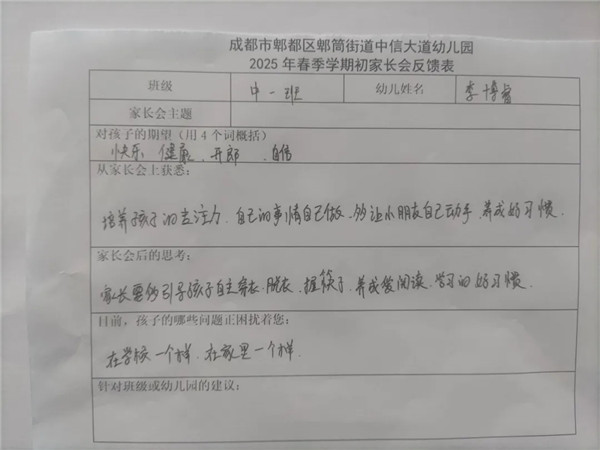 成都市郫都区郫筒街道中信大道幼儿园
2025年春季学期初家长会反馈表
班级 中一班 幼儿姓名 李博睿
家长会主题
对孩子的期望（用4个词概括）
快乐 健康、开郎、自信
从家长会上获悉：
培养孩子的专注力、自己的事情自己做、多让小朋友自己动手、养成好习惯、
家长会后的思考：
家长要多引导孩子自主穿衣、脱衣、握筷子、养成爱阅读、学习的好习惯、
目前，孩子的哪些问题正困扰着您：
在学校一个样、在家里一个样、
针对班级或幼儿园的建议：